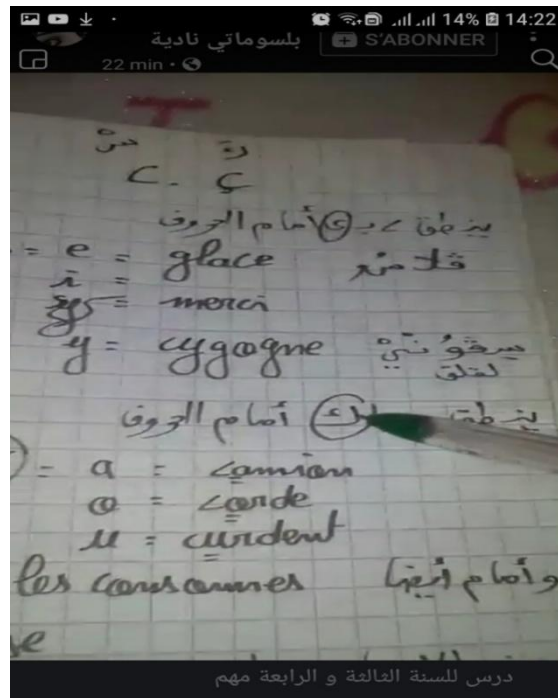 14% 14:22
بلسوماتي نادية S'ABONNER
22 min
سْ كَ
c . ç
ينطق c بـ س أمام الحروف
= e = glace ڤلاس
i =
= merci
y = cygogne سيڤوُنيْ
لقلق
ينطق ك أمام الحروف
= a = camion
o = corde
u = curdent
les consonnes وأمام أيضا
e
درس للسنة الثالثة و الرابعة مهم